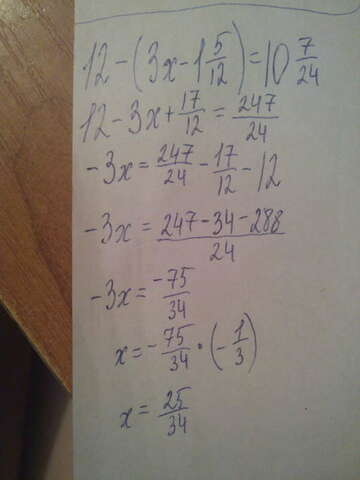 12 - (3x - 1 5/12) = 10 7/24
12 - 3x + 17/12 = 247/24
-3x = 247/24 - 17/12 - 12
-3x = 247-34-288/24
-3x = -75/34
x = -75/34 · (-1/3)
x = 25/34